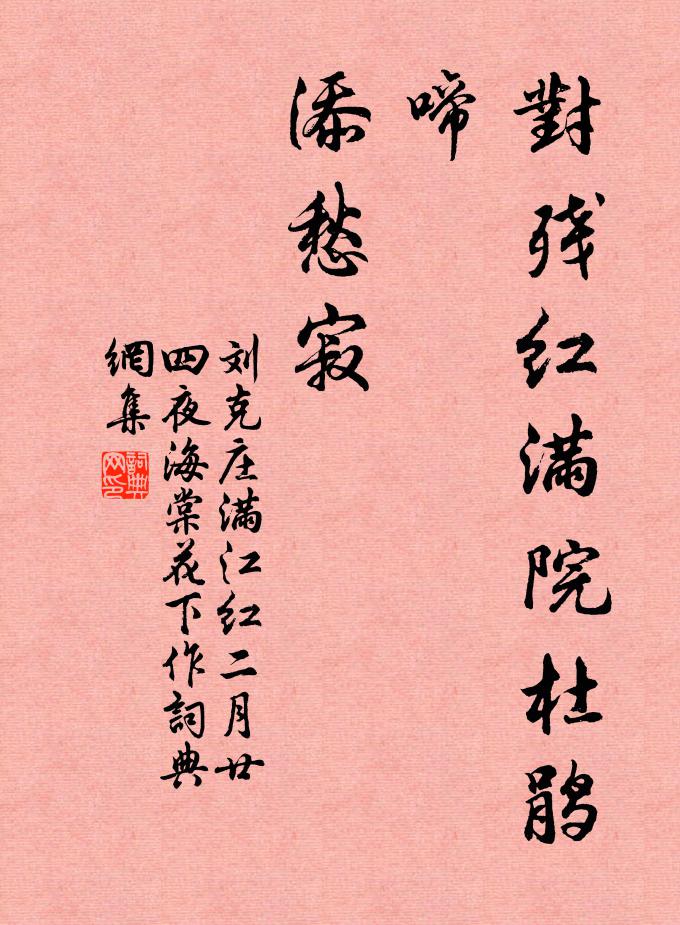 對残红满院杜鹃
啼
添愁寂
刘克庄满江红二月廿
四夜海棠花下作詞典
網集
詞典网印